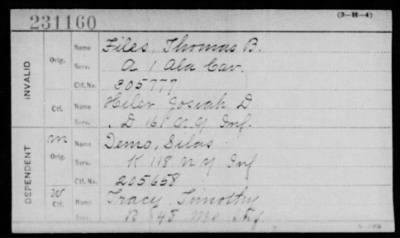 231160
(3-H-4)
INVALID
Orig.
Name Files, Thomas B.
Serv. A 1 Ala Cav.
Ctf. No. 305777
Ctf.
Name Hiler Josiah D
Serv. D 161 N.Y Inf.
DEPENDENT
m
Orig.
Name Demo, Silas
Serv. K 118 N Y Inf
Ctf. No. 205658
W
Ctf.
Name Tracy, Timothy
Serv. B 48